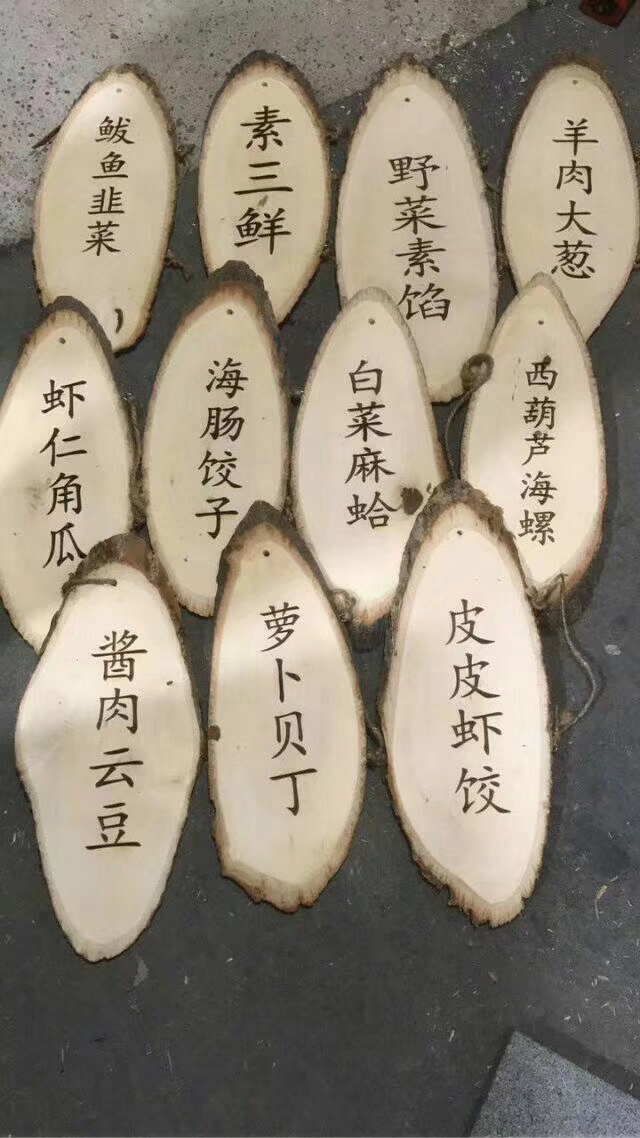 鲅鱼韭菜
素三鲜
野菜素馅
羊肉大葱
虾仁角瓜
海肠饺子
白菜麻蛤
西葫芦海螺
酱肉云豆
萝卜贝丁
皮皮虾饺